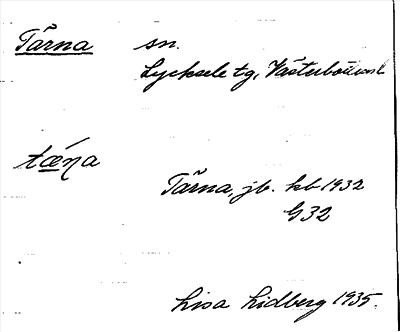 Tärna sn.
Lycksele tg, Västerbottens l
tǽṇa
Tärna, jb. kb 1932
G32
Lisa Lidberg 1935.